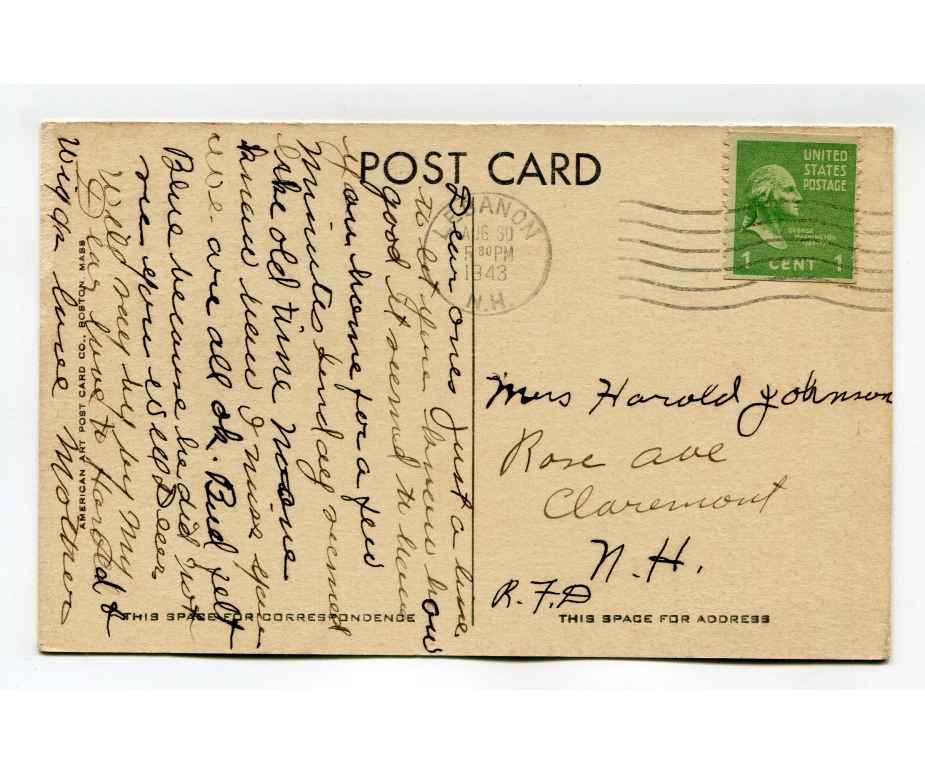 POST CARD
UNITED
STATES
POSTAGE
GEORGE WASHINGTON
1 CENT 1
LEBANON
AUG 30
5 30 PM
1943
N.H.
Dear ones Just a line
to let you know how
good it seemed to have
you home for a few
Minutes Sunday seemed
like old time No one
knows how I miss you
we are all ok. Bud felt
Blue because he did not
see you
Will say by by My
Dear love to Harold &
Mother
Mrs Harold Johnson
Rose ave
Claremont
N. H.
R. F. D
AMERICAN ART POST CARD CO., BOSTON, MASS
THIS SPACE FOR CORRESPONDENCE
THIS SPACE FOR ADDRESS